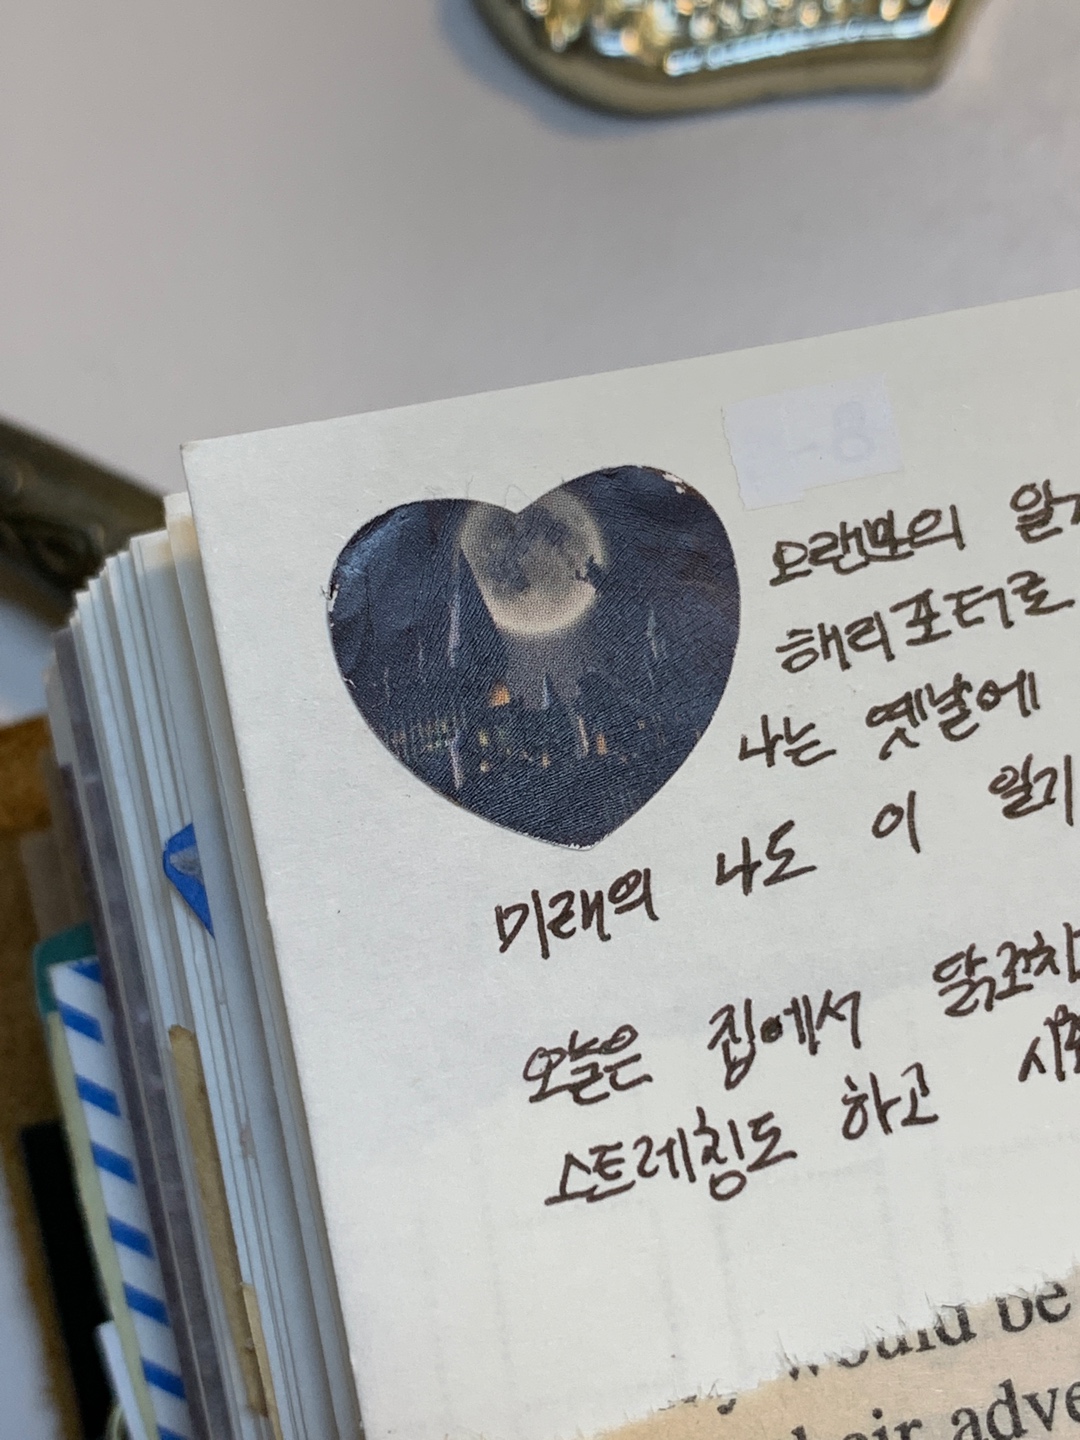 -8
오랜만의 일기
해리포터로
나는 옛날에
미래의 나도 이 일기
오늘은 집에서 닭고치
스트레칭도 하고
would be
their adve